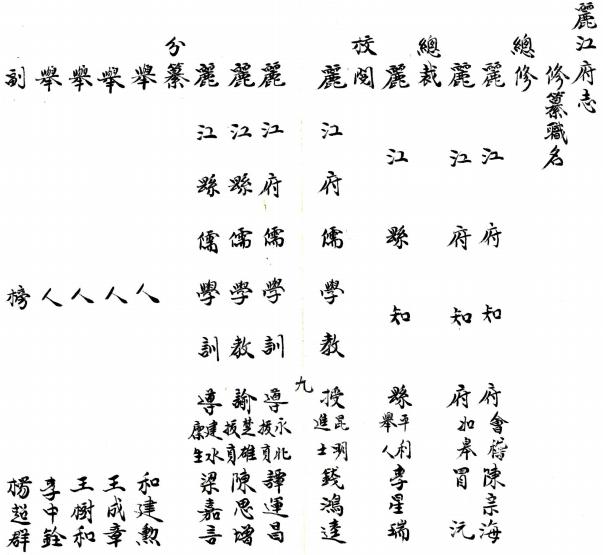 麗江府志
修纂職名
總修
麗江府知府會稽陳宗海
麗江府知府如皋冒沅
總裁
麗江縣知縣平利舉人李星瑞
校閱
麗江府儒學教授昆明進士錢鴻逵
九
麗江府儒學訓導永北拔貢譚運昌
麗江縣儒學教諭楚雄拔貢陳思增
麗江縣儒學訓導建水廪生梁嘉言
分纂
舉人和建勲
舉人王成章
舉人王樹和
舉人李中銓
副榜楊超群